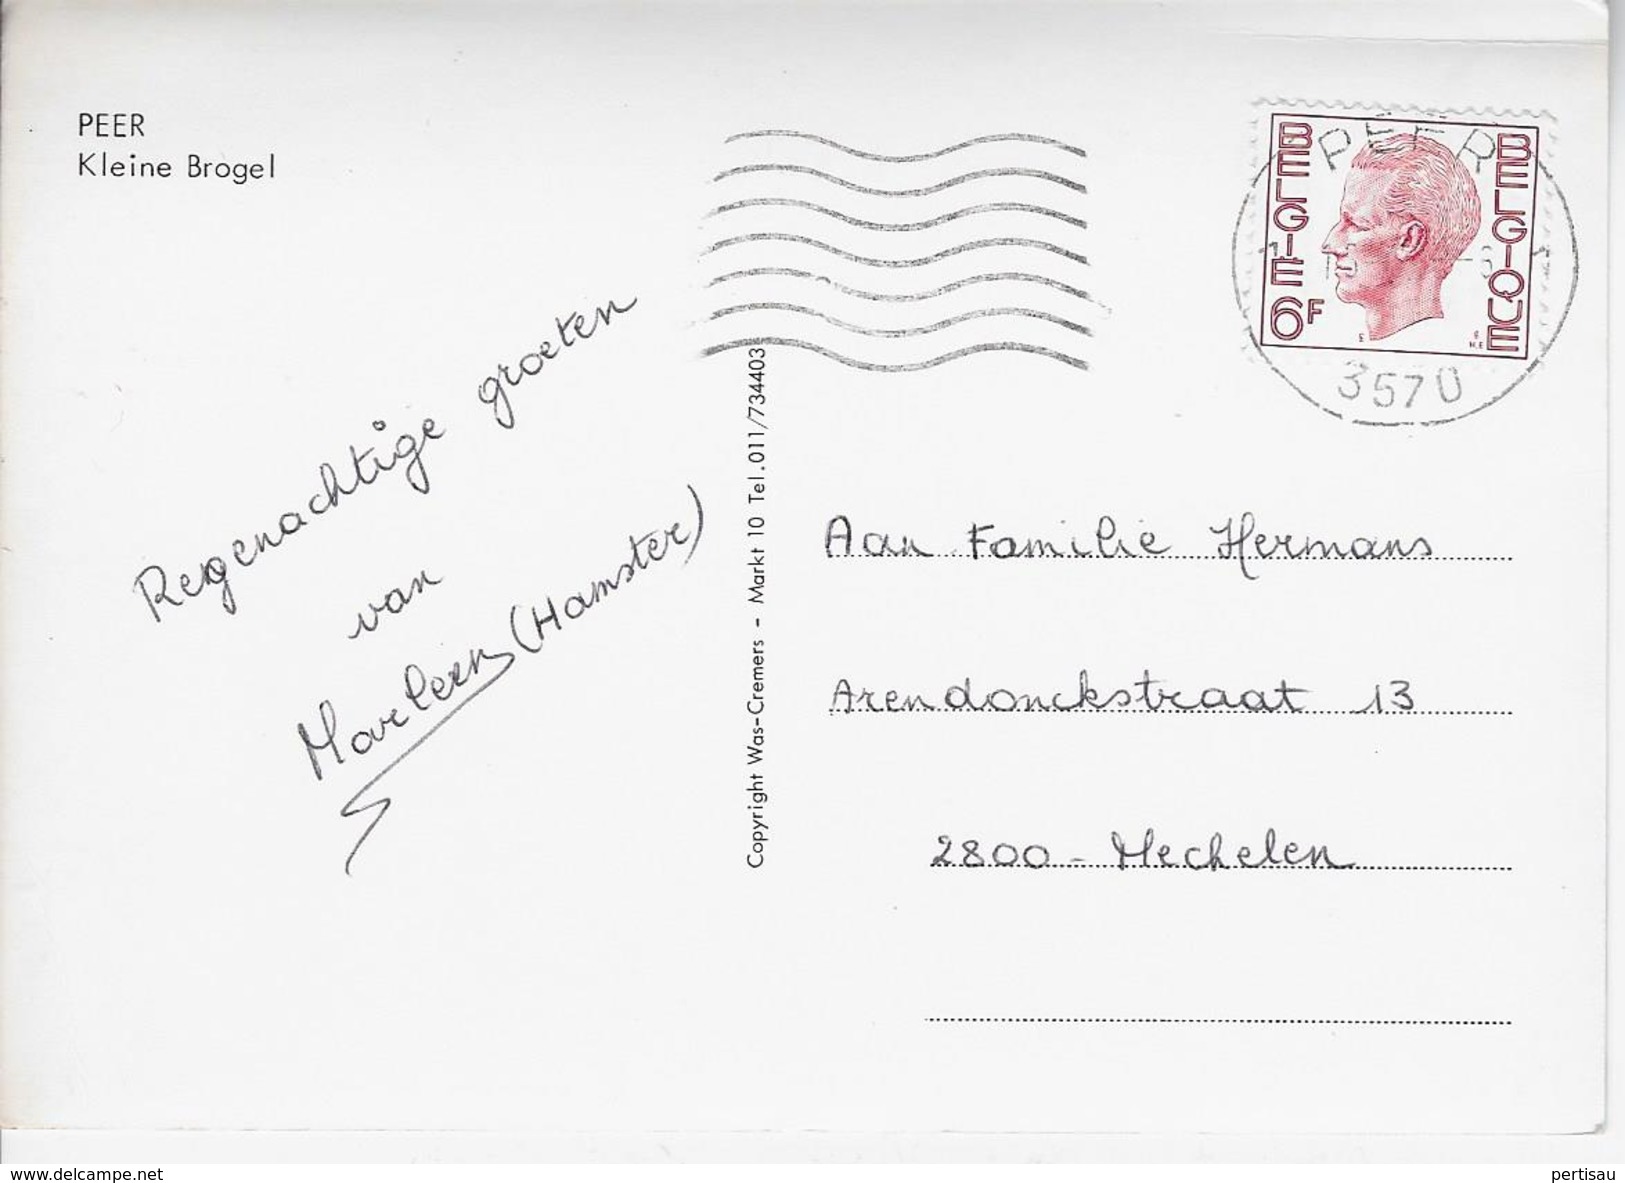 PEER
Kleine Brogel
Regenachtige groeten
van
Marleen (Hamster)
Copyright Was-Cremers - Markt 10 Tel.011/734403
BELGIE 6F
BELGIQUE
PEER
3570
Aan Familie Hermans
Arendonckstraat 13
2800 - Mechelen
www.delcampe.net
pertisau